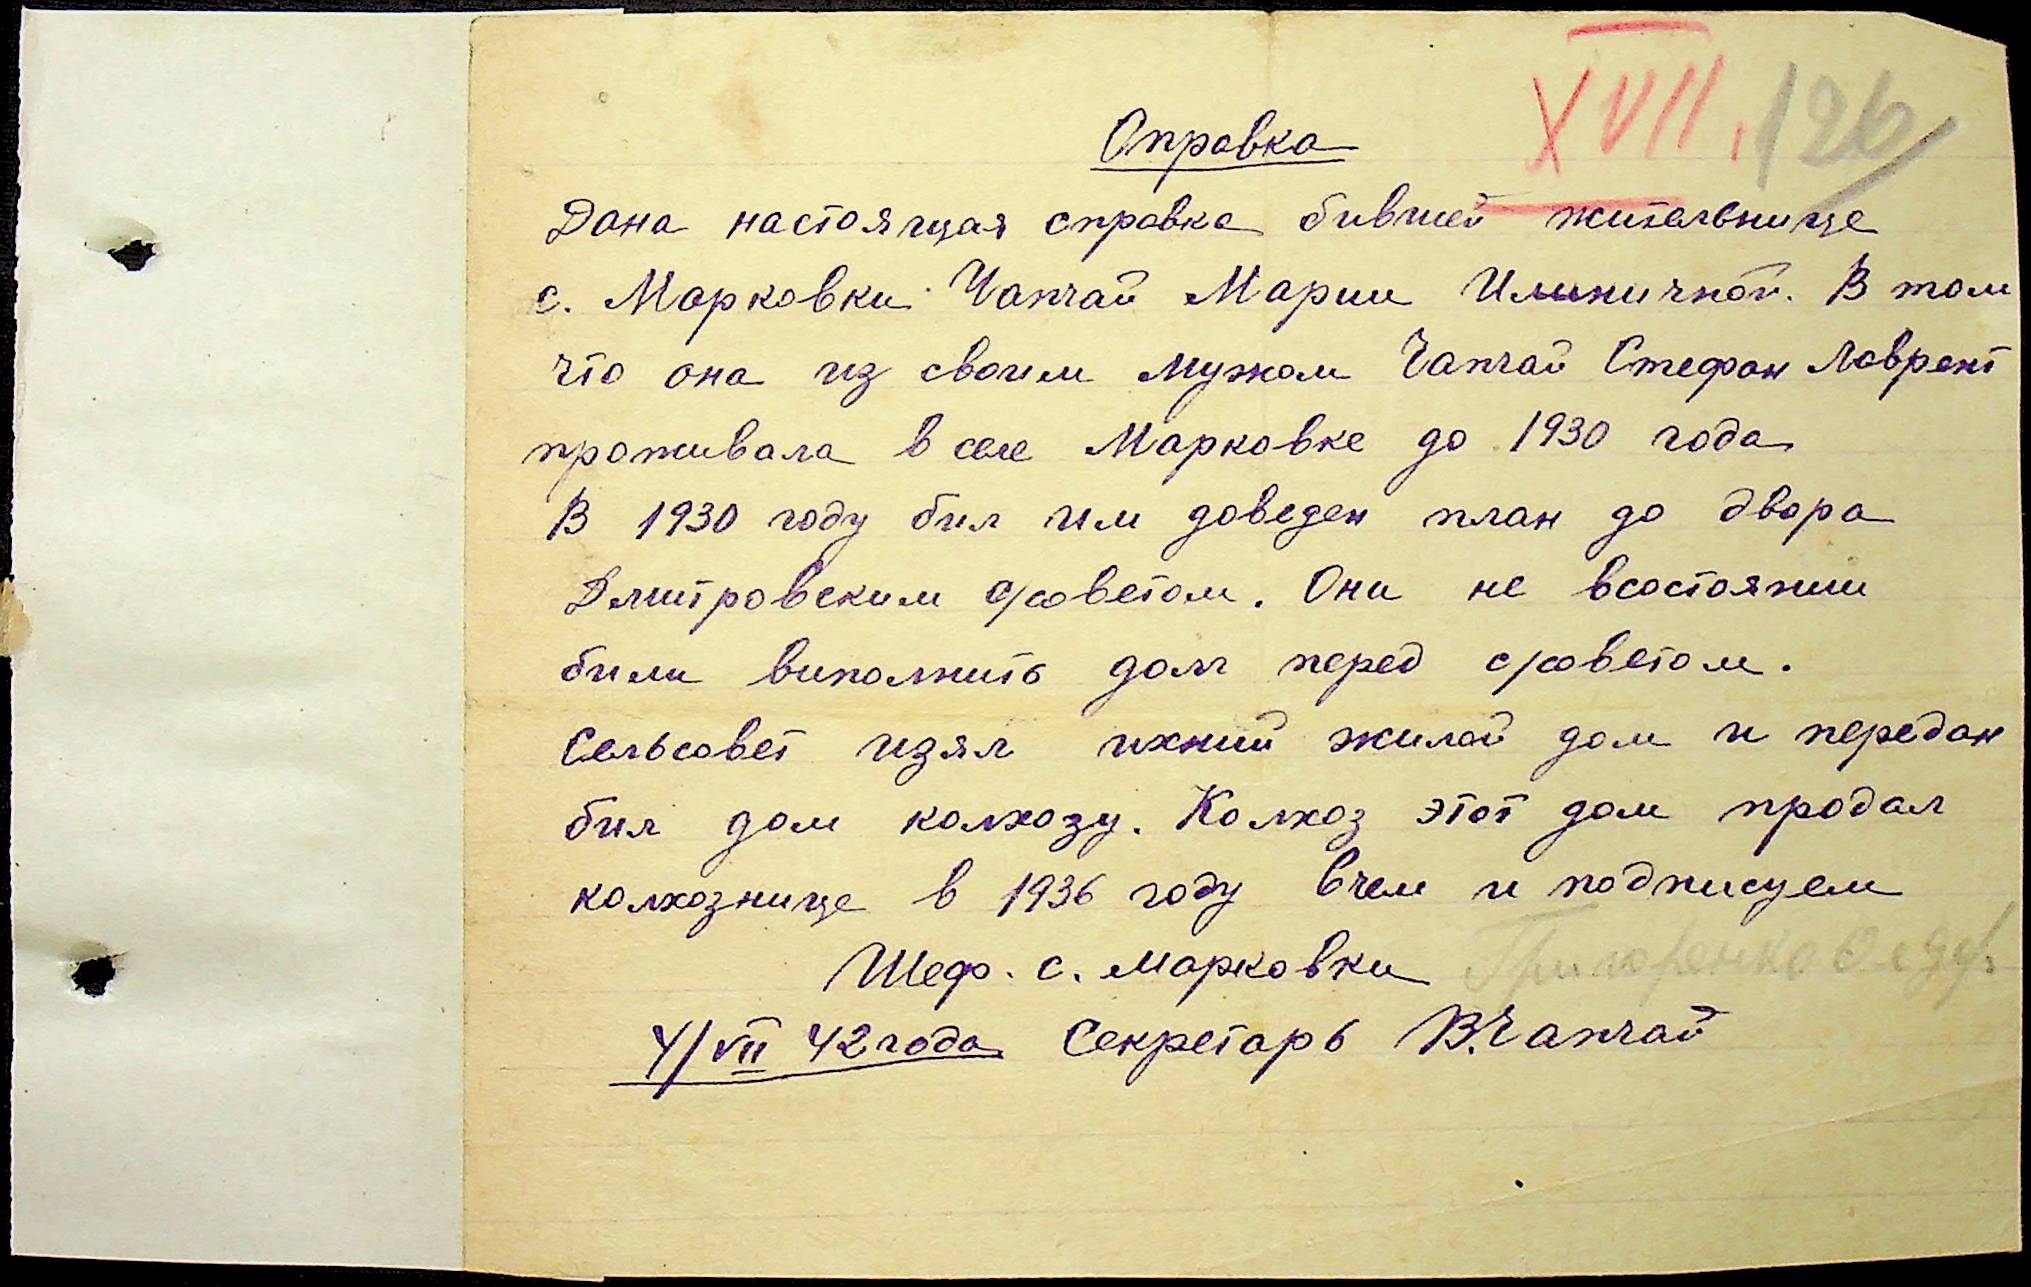 XVII, 126
Справка
Дана настоящая справка бившей жительнице
с. Марковки Чапчай Марии Илиничной. В том
что она из своим мужом Чапчай Стефан Лаврент
проживала в селе Марковке до 1930 года
В 1930 году бил им доведен план до двора
Дмитровским с/советом. Они не всостоянии
били виполнить долг перед с/советом.
Сельсовет изял ихний жилой дом и передан
бил дом колхозу. Колхоз этот дом продал
колхознице в 1936 году вчем и подписуем
Шеф. с. Марковки Григоренко
4/VII 42 года Секретарь В.Чапчай